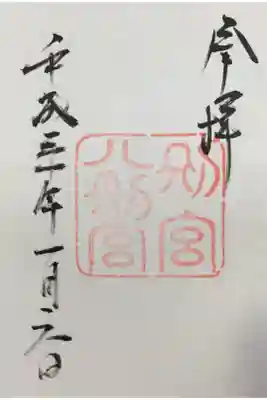 奉拝
別宮
八幡宮
平成三十年一月二日